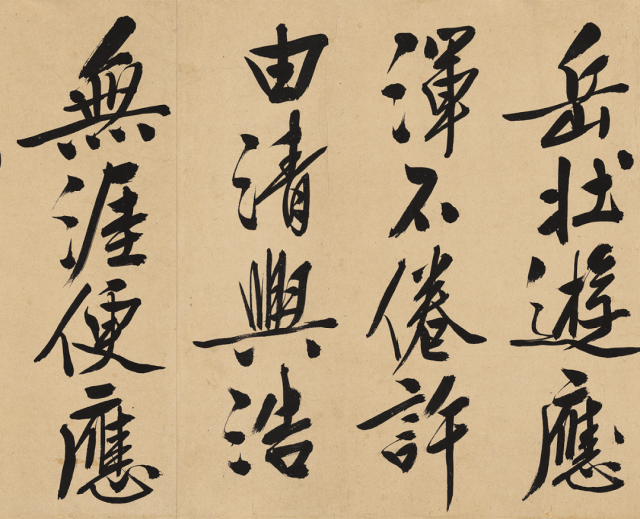 岳壯遊應
渾不倦許
由清興浩
無涯便應